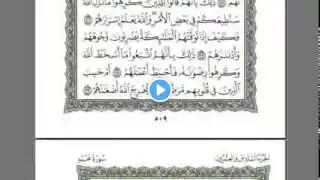 لهم ۝ ذلك بأنهم قالوا للذين كرهوا ما نزل الله
سنطيعكم في بعض الأمر والله يعلم إسرارهم ۝
فكيف إذا توفتهم الملائكة يضربون وجوههم
وأدبارهم ۝ ذلك بأنهم اتبعوا ما أسخط الله
وكرهوا رضوانه فأحبط أعمالهم ۝ أم حسب
الذين في قلوبهم مرض أن لن يخرج الله أضغانهم ۝
٥٠٩
الجزء السادس والعشرون
سورة محمد